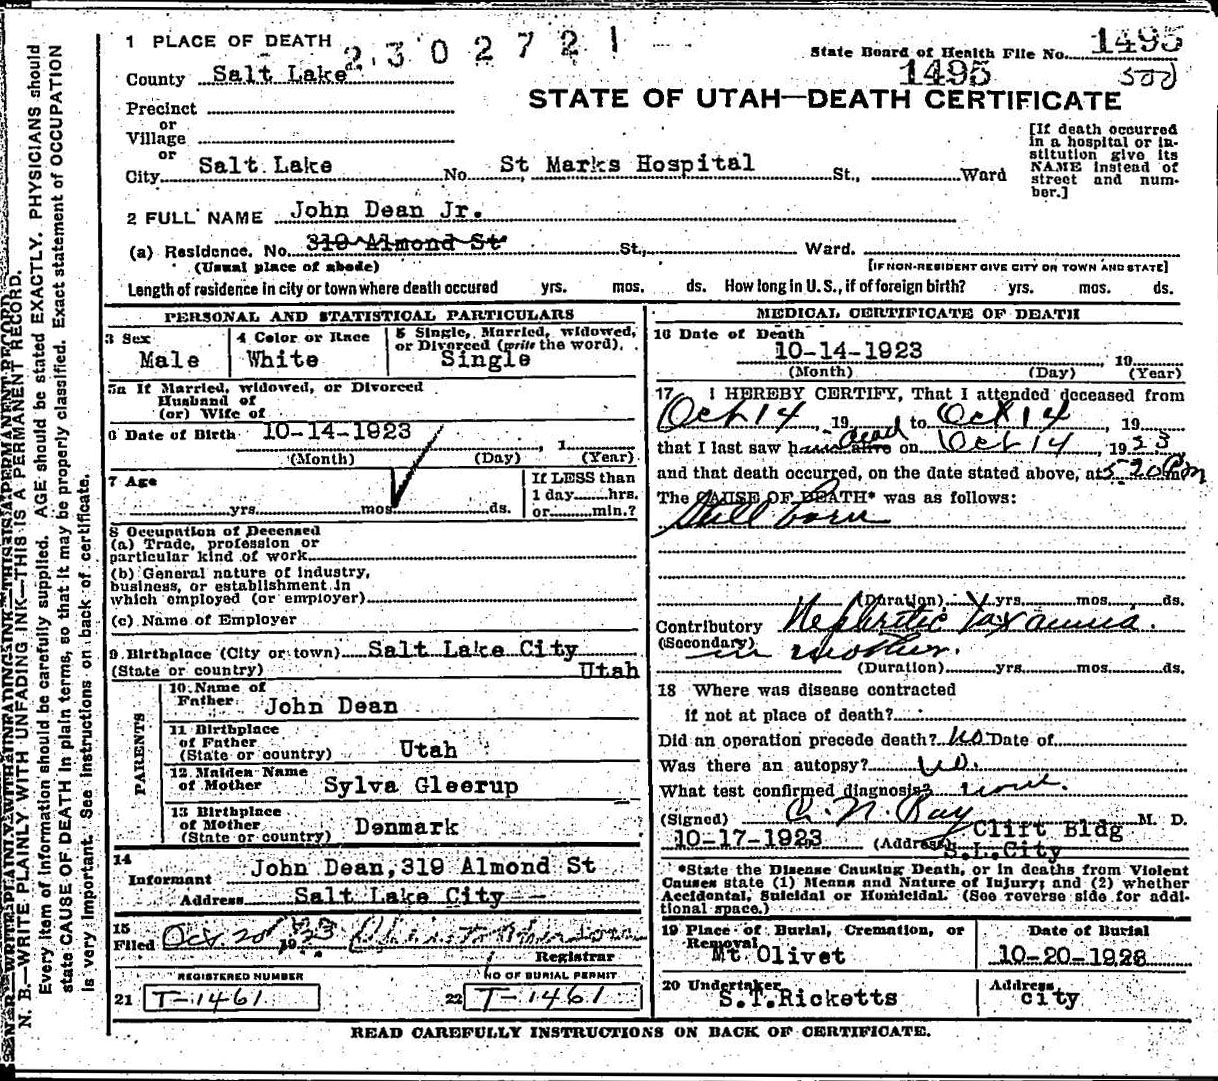 1 PLACE OF DEATH
2302721
State Board of Health File No. 1495
County Salt Lake
1495
500
STATE OF UTAH—DEATH CERTIFICATE
Precinct
or
Village
or
City Salt Lake No. St Marks Hospital St., Ward
[If death occurred in a hospital or institution give its NAME instead of street and number.]
2 FULL NAME John Dean Jr.
(a) Residence. No. 319 Almond St St., Ward.
(Usual place of abode) [IF NON-RESIDENT GIVE CITY OR TOWN AND STATE]
Length of residence in city or town where death occured yrs. mos. ds. How long in U. S., if of foreign birth? yrs. mos. ds.
PERSONAL AND STATISTICAL PARTICULARS
3 Sex
Male
4 Color or Race
White
5 Single, Married, widowed,
or Divorced (write the word).
Single
5a If Married, widowed, or Divorced
Husband of
(or) Wife of
6 Date of Birth 10-14-1923 , 1
(Month) (Day) (Year)
7 Age
yrs. mos. ds.
If LESS than
1 day hrs.
or min.?
8 Occupation of Deceased
(a) Trade, profession or
particular kind of work
(b) General nature of industry,
business, or establishment in
which employed (or employer)
(c) Name of Employer
9 Birthplace (City or town) Salt Lake City
(State or country) Utah
PARENTS
10 Name of
Father John Dean
11 Birthplace
of Father
(State or country) Utah
12 Maiden Name
of Mother Sylva Gleerup
13 Birthplace
of Mother
(State or country) Denmark
14
Informant John Dean, 319 Almond St
Address Salt Lake City
15
Filed Oct 20 1923
Registrar
REGISTERED NUMBER
21 T-1461
NO OF BURIAL PERMIT
22 T-1461
MEDICAL CERTIFICATE OF DEATH
16 Date of Death
10-14-1923 , 19
(Month) (Day) (Year)
17 I HEREBY CERTIFY, That I attended deceased from
Oct 14 , 19 to Oct 14 , 19
that I last saw h alive dead on Oct 14 , 1923
and that death occurred, on the date stated above, at 5 20 P m
The CAUSE OF DEATH* was as follows:
Still born
(Duration) yrs. mos. ds.
Contributory Nephritic Toxaemia
(Secondary) in mother.
(Duration) yrs. mos. ds.
18 Where was disease contracted
if not at place of death?
Did an operation precede death? No Date of
Was there an autopsy? No.
What test confirmed diagnosis? none.
(Signed) C. N. Ray M. D.
10-17-1923 (Address) Clift Bldg
S.L.City
*State the Disease Causing Death, or in deaths from Violent
Causes state (1) Means and Nature of Injury; and (2) whether
Accidental, Suicidal or Homicidal. (See reverse side for addi-
tional space.)
19 Place of Burial, Cremation, or
Removal
Mt. Olivet
Date of Burial
10-20-1923
20 Undertaker
S.T.Ricketts
Address
city
READ CAREFULLY INSTRUCTIONS ON BACK OF CERTIFICATE.
N. B.—WRITE PLAINLY WITH UNFADING INK—THIS IS A PERMANENT RECORD.
Every item of information should be carefully supplied. AGE should be stated EXACTLY. PHYSICIANS should
state CAUSE OF DEATH in plain terms, so that it may be properly classified. Exact statement of OCCUPATION
is very important. See instructions on back of certificate.